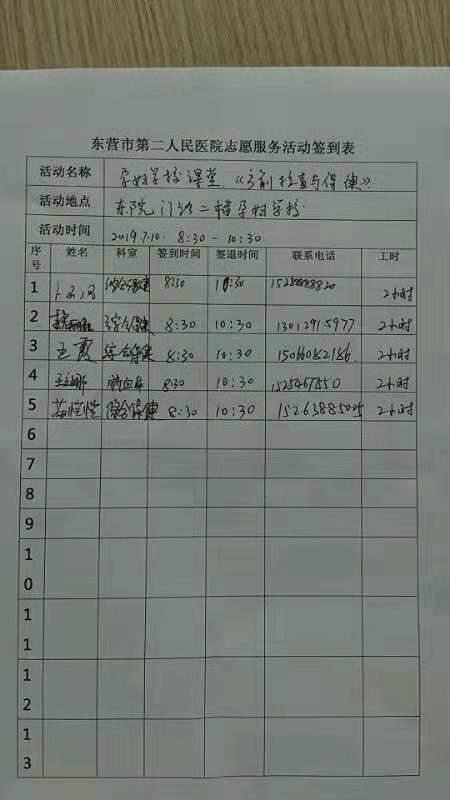 东营市第二人民医院志愿服务活动签到表
活动名称 孕妇学校课堂《产前检查与保健》
活动地点 东院门诊二楼孕妇学校
活动时间 2019.7.10. 8:30 - 10:30
序号 姓名 科室 签到时间 签退时间 联系电话 工时
1 综合保健 8:30 10:30 2小时
2 综合保健 8:30 10:30 13012915977 2小时
3 王霞 综合保健 8:30 10:30 15066082186 2小时
4 8:30 10:30 2小时
5 综合保健 8:30 10:30 15263885025 2小时
6
7
8
9
10
11
12
13